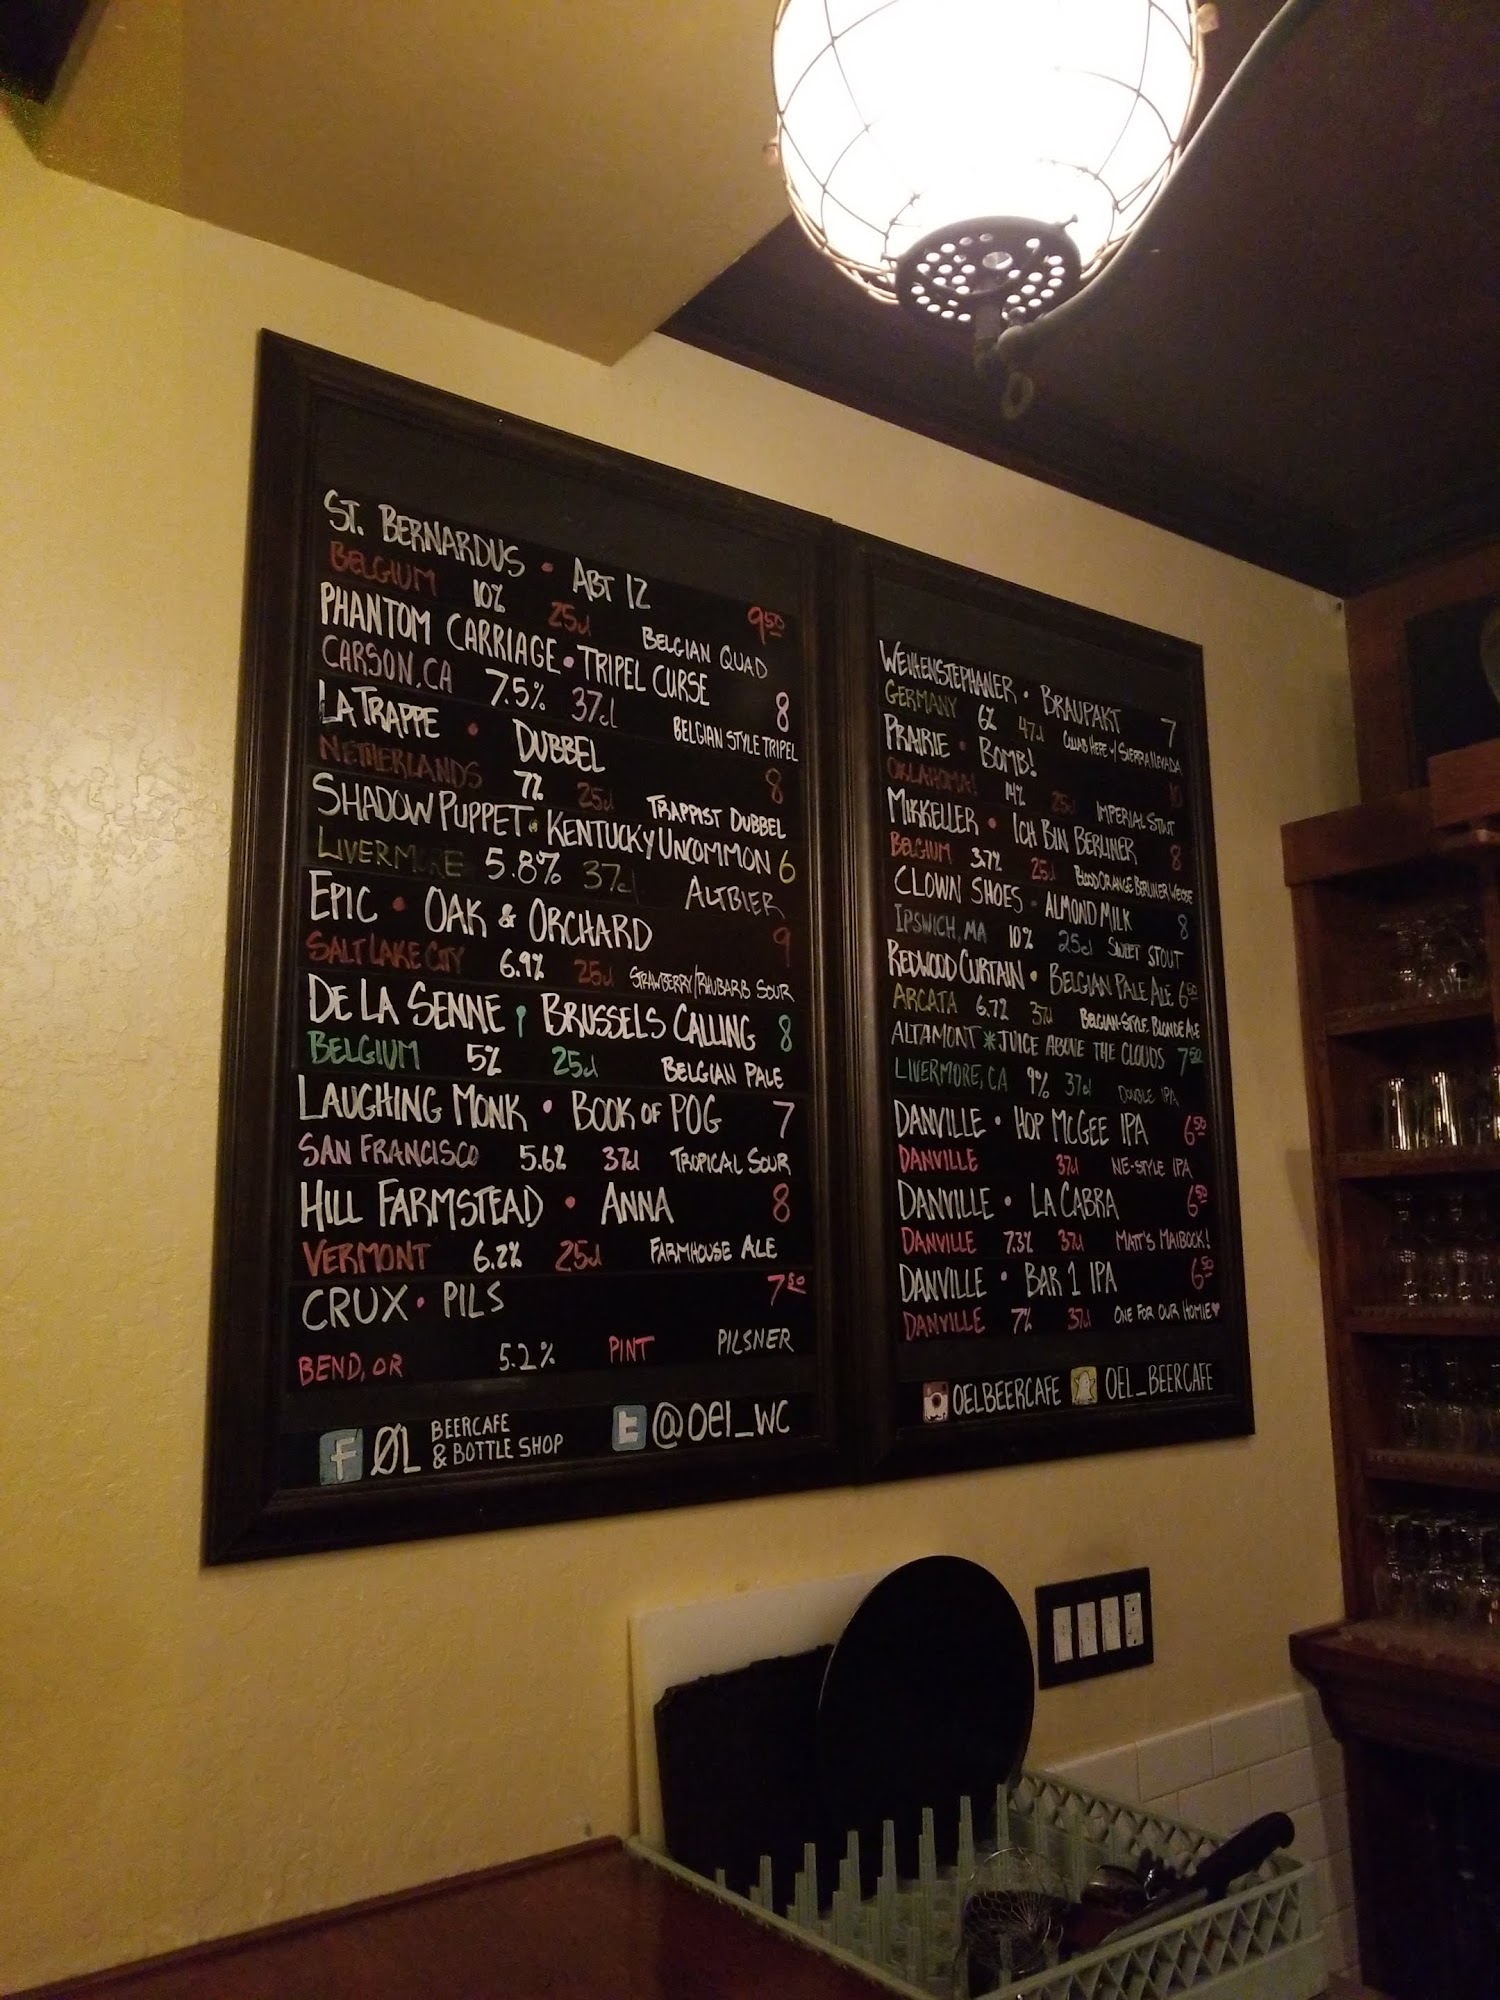 ST. BERNARDUS • ABT 12
BELGIUM 10% 25cl BELGIAN QUAD 9.50
PHANTOM CARRIAGE • TRIPEL CURSE
CARSON, CA 7.5% 37cl BELGIAN STYLE TRIPEL 8
LA TRAPPE • DUBBEL
NETHERLANDS 7% 25cl TRAPPIST DUBBEL 8
SHADOW PUPPET • KENTUCKY UNCOMMON 6
LIVERMORE 5.8% 37cl ALTBIER
EPIC • OAK & ORCHARD 9
SALT LAKE CITY 6.9% 25cl STRAWBERRY/RHUBARB SOUR
DE LA SENNE BRUSSELS CALLING 8
BELGIUM 5% 25cl BELGIAN PALE
LAUGHING MONK • BOOK OF POG 7
SAN FRANCISCO 5.6% 37cl TROPICAL SOUR
HILL FARMSTEAD • ANNA 8
VERMONT 6.2% 25cl FARMHOUSE ALE
CRUX • PILS 7.50
BEND, OR 5.2% PINT PILSNER
f ØL BEERCAFE & BOTTLE SHOP t @OEL_WC
WEIHENSTEPHANER • BRAUPAKT 7
GERMANY 6% 47cl COLLAB HEFE W/ SIERRA NEVADA
PRAIRIE • BOMB! 10
OKLAHOMA! 14% 25cl IMPERIAL STOUT
MIKKELLER • ICH BIN BERLINER 8
BELGIUM 3.7% 25cl BLOOD ORANGE BERLINER WEISSE
CLOWN SHOES • ALMOND MILK 8
IPSWICH, MA 10% 25cl SWEET STOUT
REDWOOD CURTAIN • BELGIAN PALE ALE 6.50
ARCATA 6.7% 37cl BELGIAN-STYLE BLONDE ALE
ALTAMONT * JUICE ABOVE THE CLOUDS 7.50
LIVERMORE, CA 9% 37cl DOUBLE IPA
DANVILLE • HOP MCGEE IPA 6.50
DANVILLE 37cl NE-STYLE IPA
DANVILLE • LA CABRA 6.50
DANVILLE 7.3% 37cl MATT'S MAIBOCK!
DANVILLE • BAR 1 IPA 6.50
DANVILLE 7% 37cl ONE FOR OUR HOMIE ♥
OELBEERCAFE OEL_BEERCAFE